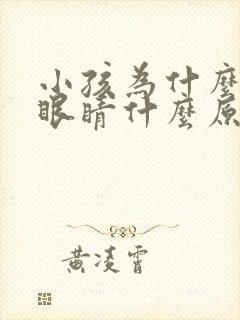 小孩為什麼
眼睛什麼原
黃凌霄